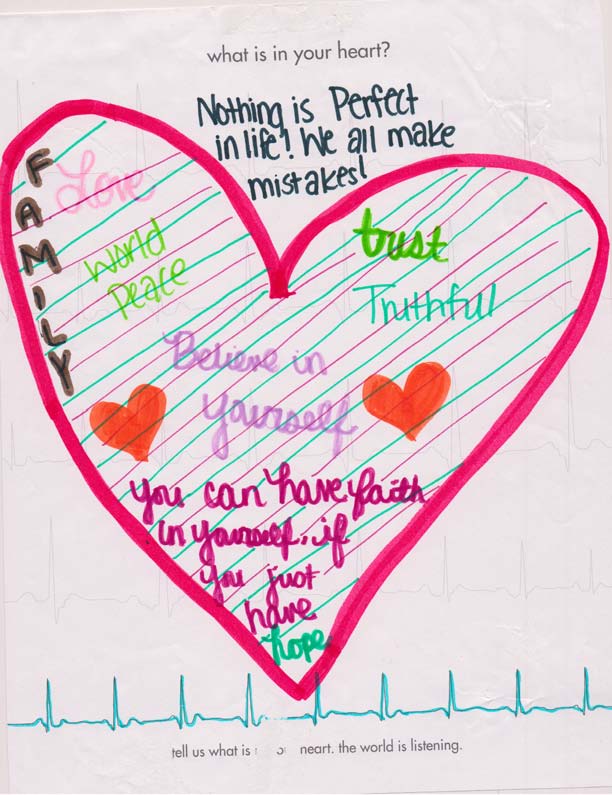 what is in your heart?
Nothing is Perfect
in life! We all make
mistakes!
FAMILY
Love
World
Peace
trust
Truthful
Believe in
Yourself
you can have faith
in yourself, if
you just
have
hope
tell us what is heart. the world is listening.